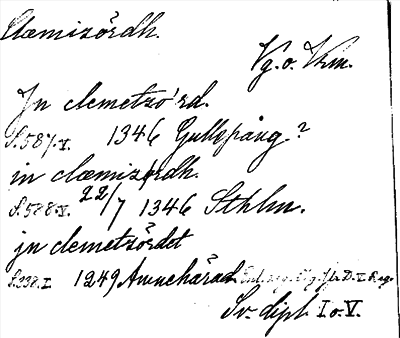 Clæmizördh.
Vg. o. Vrm.
Jn clemetzørd.
S. 587. V. 1346 Gullspång?
in clæmizørdh.
S. 588. V. 22/7 1346 Sthlm.
jn clemetzördet
S. 338. I. 1249 Amnehärad
Sv. dipl. I o. V.